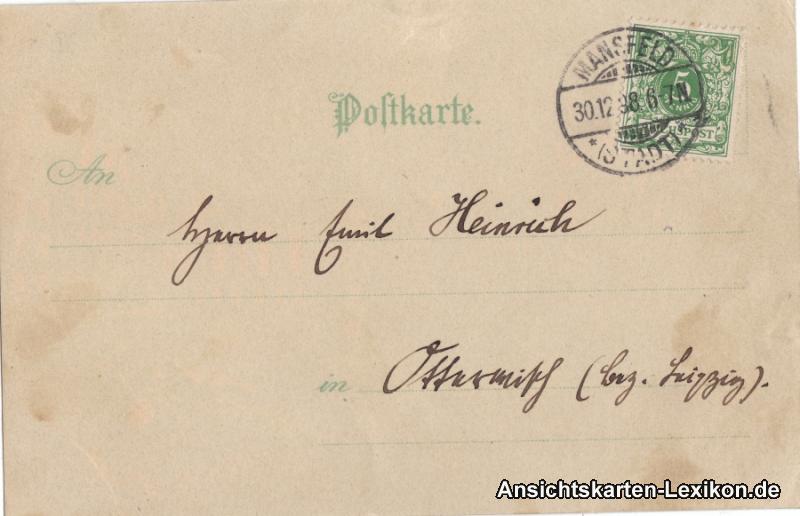 MANSFELD
30.12.98.6-7N.
*(STADT)
5
REICHSPOST
Postkarte.
An
Herrn Emil Heinrich
in Otterwisch (bez. Leipzig).
Ansichtskarten-Lexikon.de